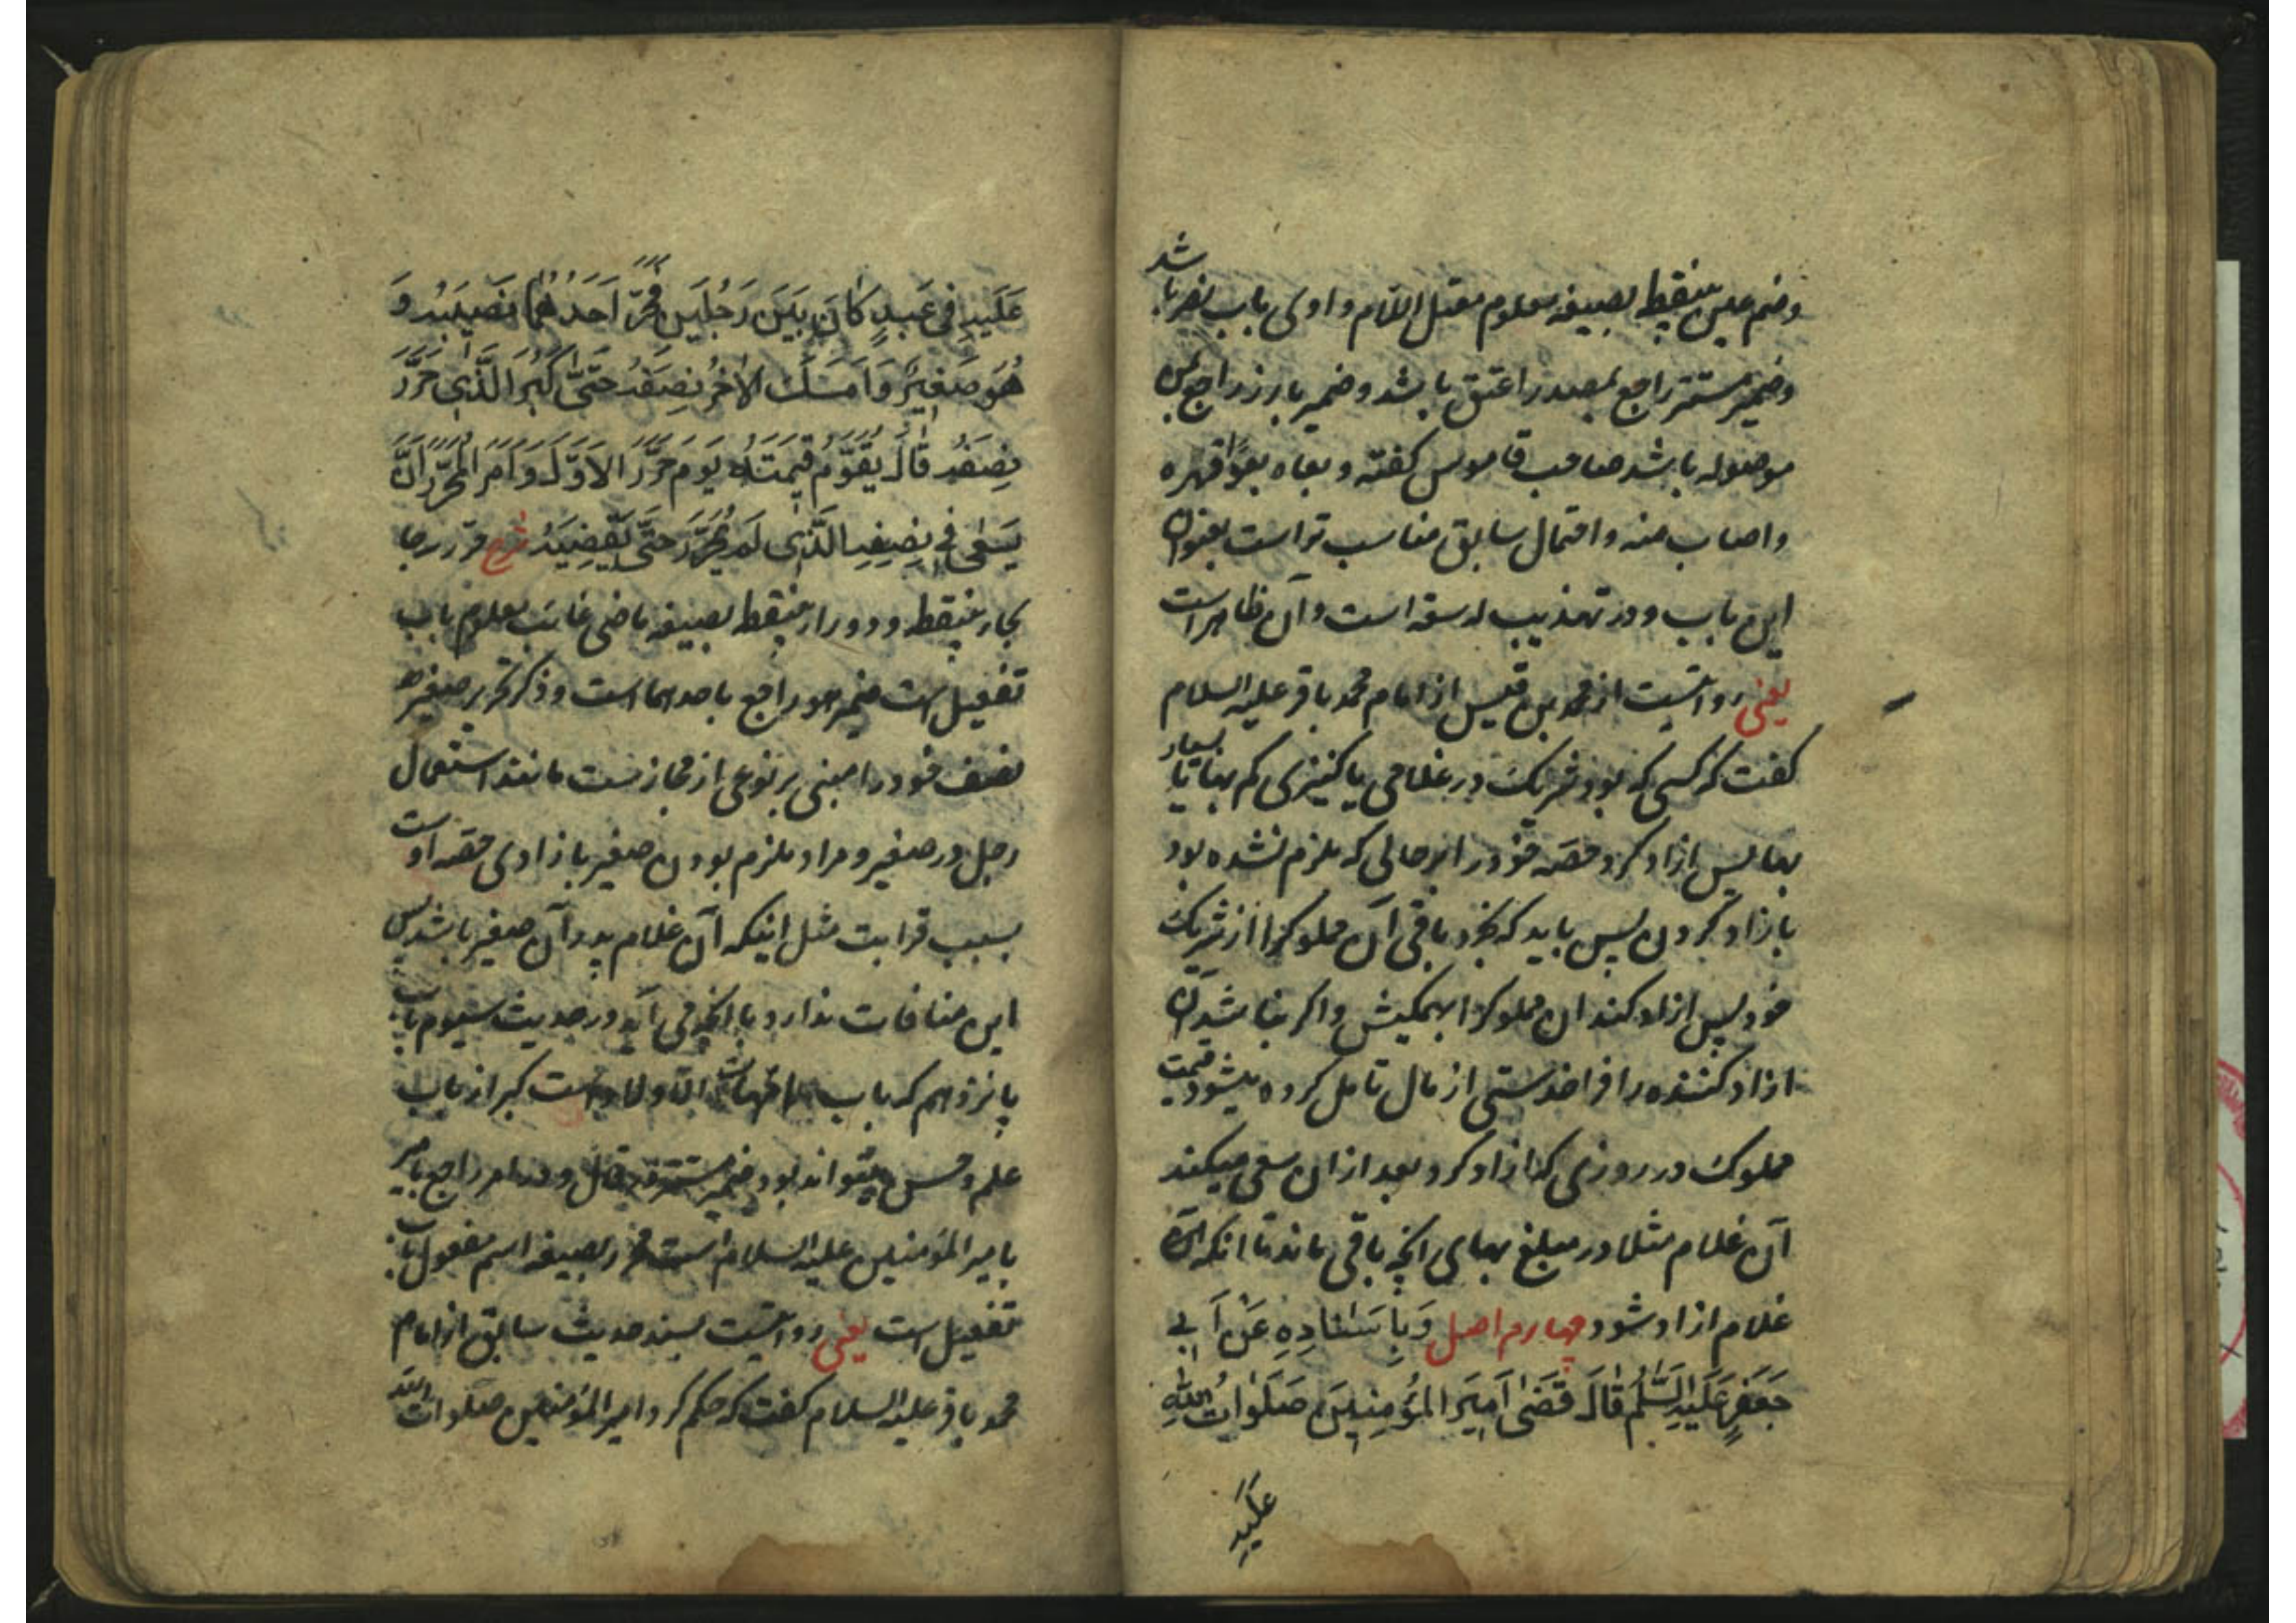 وضم عین بینقطه بصیغه معلوم معتل اللام واوی باب نصر باشد
وضمیر مستتر راجع بمصدر اعتق باشد وضمیر بارز راجع بمن
موصوله باشد صاحب قاموس گفته و بعاه بعوا قهره
واصاب منه و احتمال سابق مناسب تر است بعنوان
این باب و در تهذیب له سعة است و آن ظاهر است
یعنی روایتست از محمد بن قیس از امام محمد باقر علیه السلام
گفت که کسی که بود شریک در غلامی یا کنیزی کم بها یا بسیار
بها پس ازاد کرد حصه خود را بر حالی که ملزم نشده بود
بازاد کردن پس باید که بخرد باقی آن مملوک را از شریک
خود پس ازاد کند ان مملوک را بهمگیش و اگر نباشد آن
ازاد کننده را فراخدستی از مال تامل کرده میشود قیمت
مملوک در روزی که ازاد کرد بعد ازان سعی میکند
آن غلام مثلا در مبلغ بهای انچه باقی ماند تا انکه آن
غلام ازاد شود چهارم اصل وَبِاِسْنَادِهِ عَنْ اَبِی
جَعْفَرٍ عَلَیْهِ السَّلٰمُ قَالَ قَضٰی اَمِیرَ الْمُؤْمِنِینَ صَلَوَاتُ اللّٰهِ
عَلَیْهِ
عَلَیْهِ فِی عَبْدٍ کَانَ بَیْنَ رَجُلَیْنِ فَحَرَّرَ اَحَدُهُمَا نَصِیبَهُ وَ
هُوَ صَغِیرٌ وَاَمْسَکَ الْاٰخَرُ نِصْفَهُ حَتّٰی کَبُرَ الَّذِی حَرَّرَ
نِصْفَهُ قَالَ یُقَوَّمُ قِیمَتَهُ یَوْمَ حَرَّرَ الْاَوَّلُ وَاَمَرَ الْمُحَرَّرَ اَنْ
یَسْعٰی فِی نِصْفِهِ الَّذِی لَمْ یُحَرَّرْ حَتّٰی یَقْضِیَهُ شرح حرّر بحا
بحاء بینقطه و دو راء بینقطه بصیغه ماضی غائب معلوم باب
تفعیل است ضمیر هو راجع باحدهما است و ذکر تحریر صغیر
نصف خود را مبنی بر نوعی از مجازست مانند استعمال
رجل در صغیر و مراد ملزم بودن صغیر بازادی حصه او است
بسبب قرابت مثل اینکه آن غلام پدر آن صغیر باشد پس
این منافات ندارد با انچه می آید در حدیث سیوم باب
پانزدهم که باب امهات الاولاد است کبر از باب
علم و حسن میتواند بود ضمیر مستتر در قال و در امر راجع
بامیر المؤمنین علیه السلام است محرر بصیغه اسم مفعول باب
تفعیل است یعنی روایتست بسند حدیث سابق از امام
محمد باقر علیه السلام گفت که حکم کرد امیر المؤمنین صلوات الله